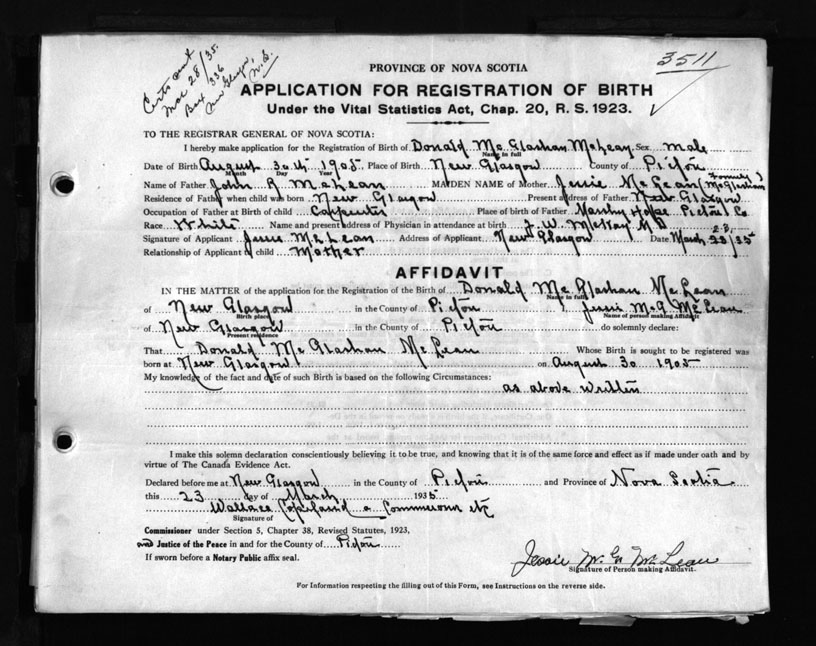 Certs sent
Mar 28/35.
Box 336
New Glasgow,
N.S.
3511
PROVINCE OF NOVA SCOTIA
APPLICATION FOR REGISTRATION OF BIRTH
Under the Vital Statistics Act, Chap. 20, R. S. 1923.
TO THE REGISTRAR GENERAL OF NOVA SCOTIA:
I hereby make application for the Registration of Birth of Donald McGlashan McLean Sex male
Name in full
Date of Birth August 30th 1905 Place of Birth New Glasgow County of Pictou
Month Day Year
Name of Father John R McLean MAIDEN NAME of Mother Jessie McLean (Formerly McGlashan)
Residence of Father when child was born New Glasgow Present address of Father New Glasgow
Occupation of Father at Birth of child Carpenter Place of birth of Father Marshy Hope Pictou Co
Race White Name and present address of Physician in attendance at birth J. W. McKay M D
Signature of Applicant Jessie McLean Address of Applicant New Glasgow Date March 23/35
Relationship of Applicant to child Mother
AFFIDAVIT
IN THE MATTER of the application for the Registration of the Birth of Donald McGlashan McLean
Name in full
of New Glasgow in the County of Pictou I, Jessie McG McLean
Birth place Name of person making Affidavit
of New Glasgow in the County of Pictou do solemnly declare:
Present residence
That Donald McGlashan McLean Whose Birth is sought to be registered was
born at New Glasgow on August 30 1905
My knowledge of the fact and date of such Birth is based on the following Circumstances:
as above written
I make this solemn declaration conscientiously believing it to be true, and knowing that it is of the same force and effect as if made under oath and by
virtue of The Canada Evidence Act.
Declared before me at New Glasgow in the County of Pictou and Province of Nova Scotia
this 23 day of March 1935
Wallace Copeland a Commissioner etc
Signature of
Commissioner under Section 5, Chapter 38, Revised Statutes, 1923,
and Justice of the Peace in and for the County of Pictou
If sworn before a Notary Public affix seal.
Jessie McG McLean
Signature of Person making Affidavit.
For Information respecting the filling out of this Form, see Instructions on the reverse side.